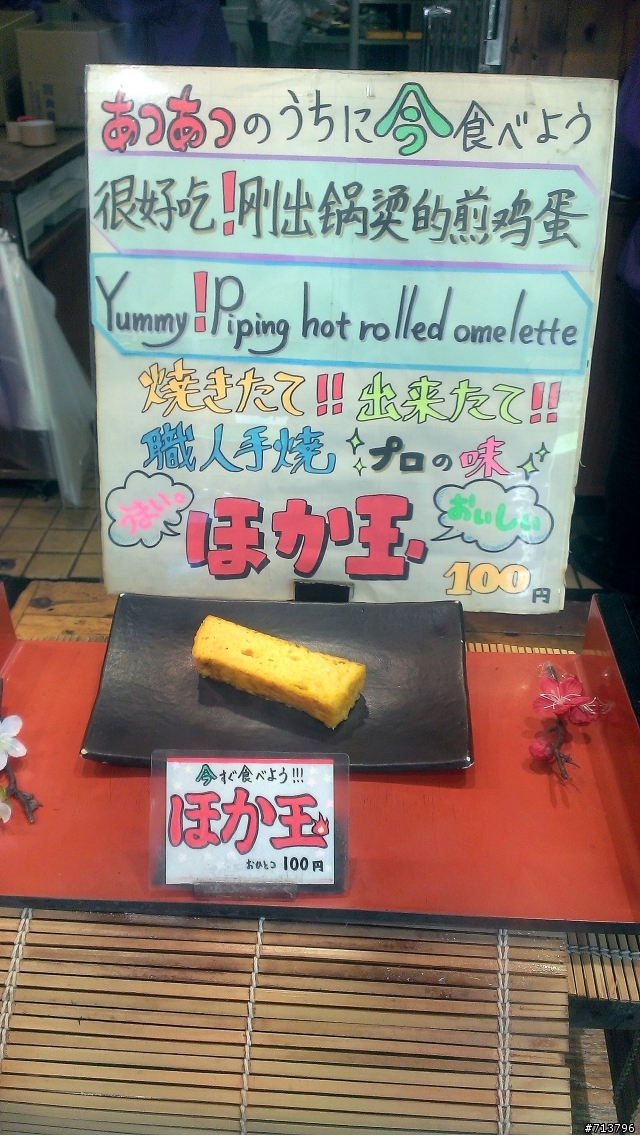 あつあつのうちに今食べよう
很好吃!刚出锅烫的煎鸡蛋
Yummy!Piping hot rolled omelette
焼きたて!! 出来たて!!
職人手焼 プロの味
うまい。
おいしい
ほか玉
100円
今すぐ食べよう!!!
ほか玉
おひとつ 100円
#713796